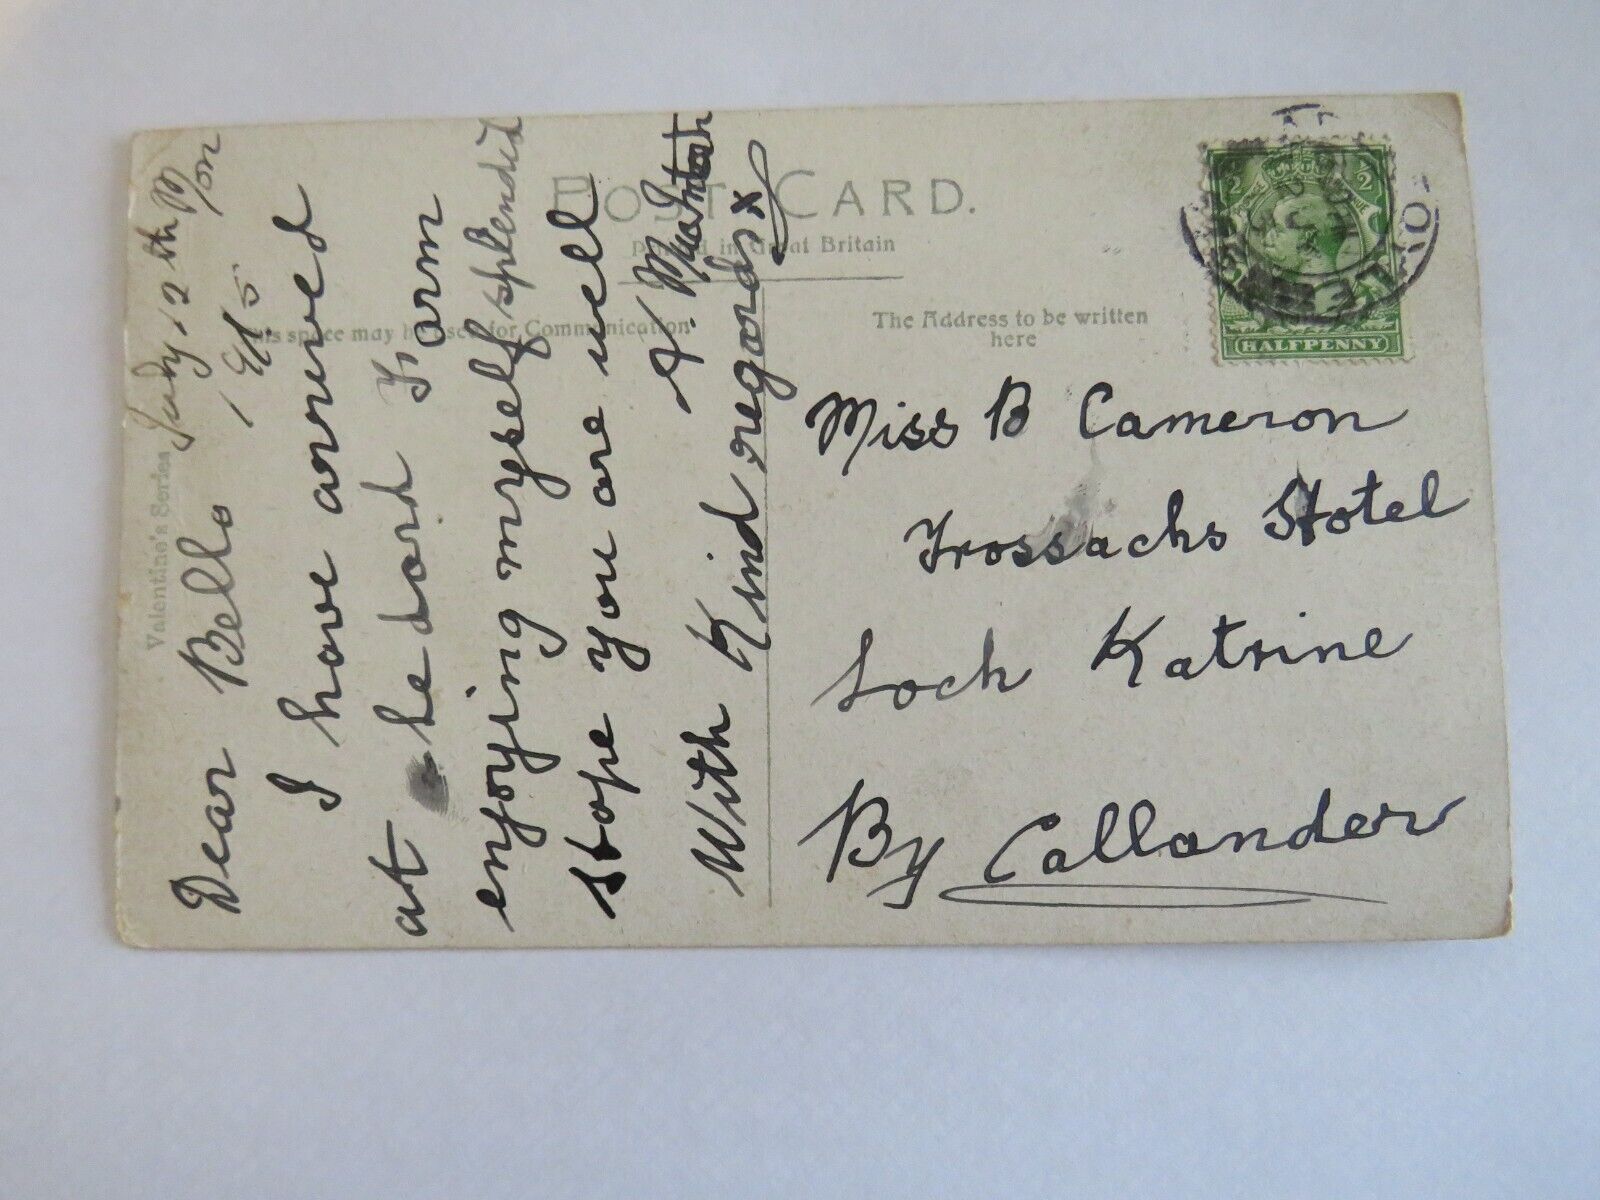 POST CARD.
Printed in Great Britain
This space may be used for Communication
The Address to be written
here
Valentine's Series
HALFPENNY
July 12th Mon
1915
Dear Bella
I have arrived
at
I am
enjoying myself splendid
Hope you are well
With Kind regards xx
Miss B Cameron
Trossachs Hotel
Loch Katrine
By Callander